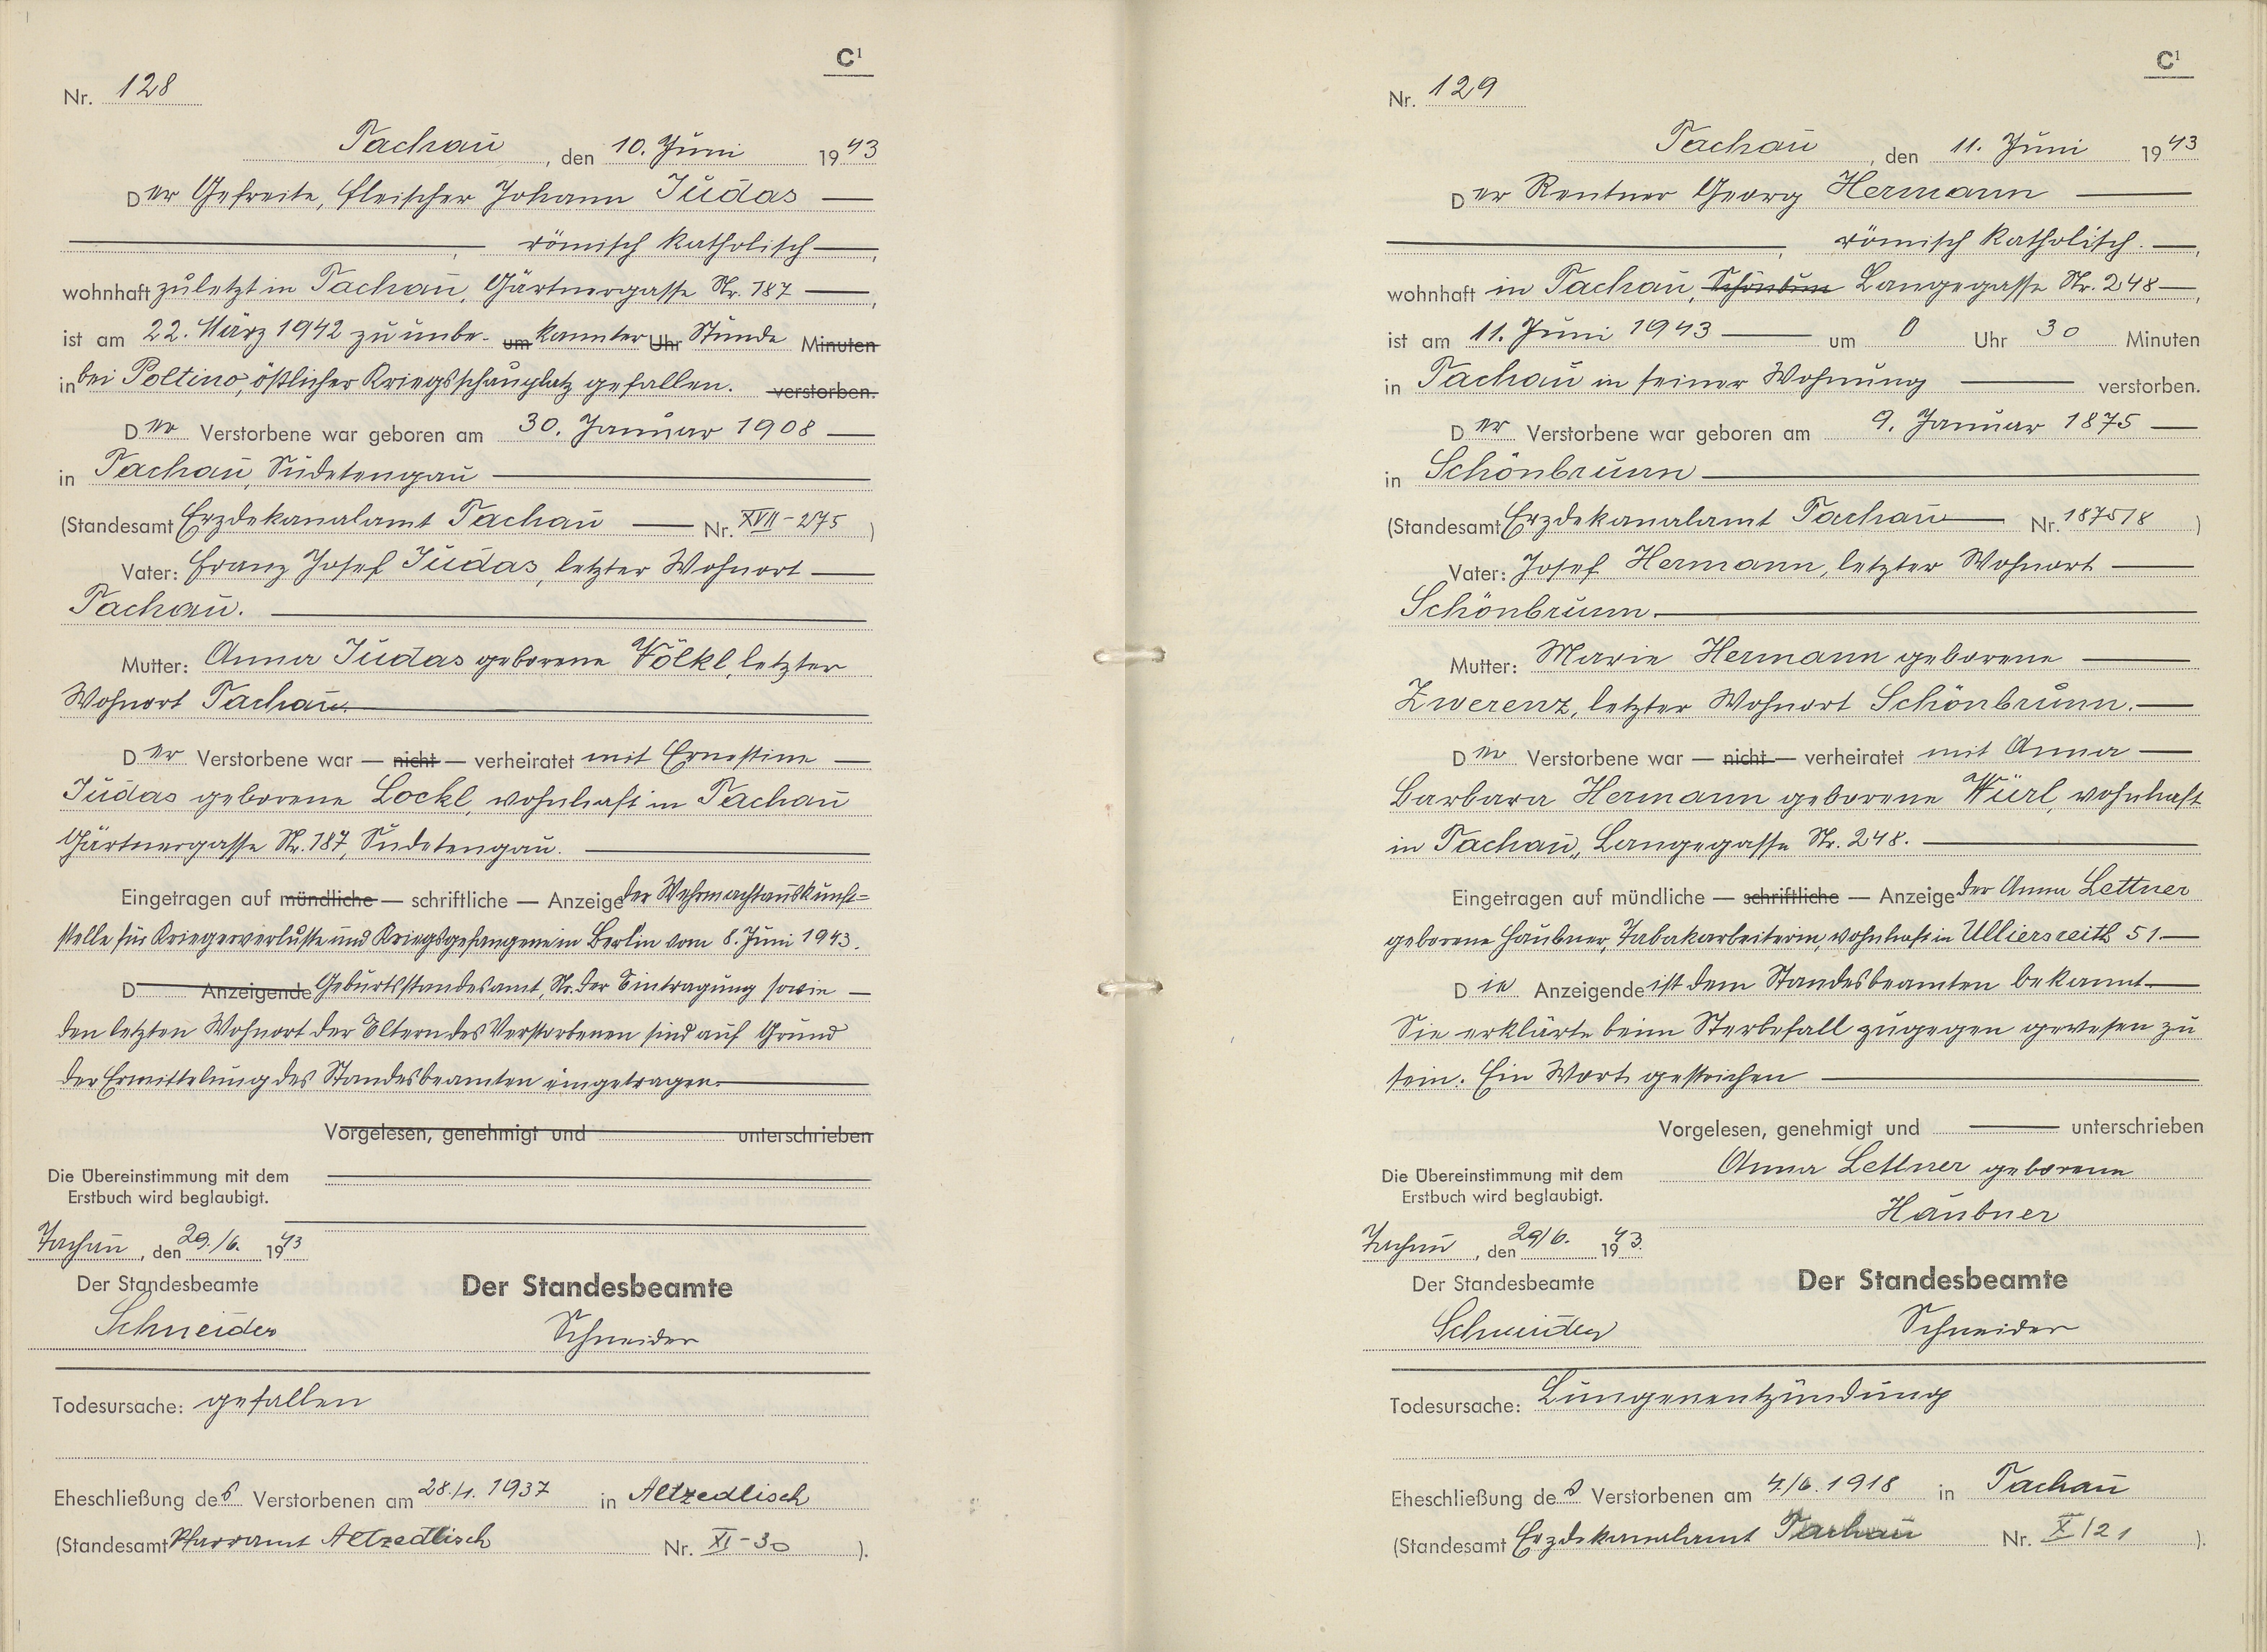 C¹
Nr. 128
Tachau, den 10. Juni 1943
Der Gefreite, Fleischer Johann Judas
römisch katholisch,
wohnhaft zuletzt in Tachau, Gärtnergasse Nr. 187,
ist am 22. März 1942 zu unbe- um kannter Uhr Stunde Minuten
in bei Poltino, östlicher Kriegsschauplatz gefallen. verstorben.
Der Verstorbene war geboren am 30. Januar 1908
in Tachau, Sudetengau
(Standesamt Erzdekanalamt Tachau Nr. XVII-275)
Vater: Franz Josef Judas, letzter Wohnort
Tachau.
Mutter: Anna Judas geborene Völkl, letzter
Wohnort Tachau.
Der Verstorbene war — nicht — verheiratet mit Ernestine
Judas geborene Lockl, wohnhaft in Tachau
Gärtnergasse Nr. 187, Sudetengau.
Eingetragen auf mündliche — schriftliche — Anzeige der Wehrmachtauskunft-
stelle für Kriegerverluste und Kriegsgefangene in Berlin vom 8. Juni 1943.
D Anzeigende Geburtsstandesamt, Nr. der Eintragung sowie
den letzten Wohnort der Eltern des Verstorbenen sind auf Grund
der Ermittelung des Standesbeamten eingetragen.
Vorgelesen, genehmigt und unterschrieben
Die Übereinstimmung mit dem
Erstbuch wird beglaubigt.
Tachau, den 29./6. 1943
Der Standesbeamte
Schneider
Der Standesbeamte
Schneider
Todesursache: gefallen
Eheschließung des Verstorbenen am 28./1. 1937 in Altzedlisch
(Standesamt Pfarramt Altzedlisch Nr. XI-30).
C¹
Nr. 129
Tachau, den 11. Juni 1943
Der Rentner Georg Hermann
römisch katholisch.,
wohnhaft in Tachau, Schönbrun Langegasse Nr. 248,
ist am 11. Juni 1943 um 0 Uhr 30 Minuten
in Tachau in seiner Wohnung verstorben.
Der Verstorbene war geboren am 9. Januar 1875
in Schönbrunn
(Standesamt Erzdekanalamt Tachau Nr. 1875/8)
Vater: Josef Hermann, letzter Wohnort
Schönbrunn.
Mutter: Marie Hermann geborene
Zwerenz, letzter Wohnort Schönbrunn.
Der Verstorbene war — nicht — verheiratet mit Anna
Barbara Hermann geborene Würl, wohnhaft
in Tachau, Langegasse Nr. 248.
Eingetragen auf mündliche — schriftliche — Anzeige der Anna Lettner
geborene Haubner, Tabakarbeiterin, wohnhaft in Ulliersreith 51.
Die Anzeigende ist dem Standesbeamten bekannt.
Sie erklärte beim Sterbefall zugegen gewesen zu
sein. Ein Wort gestrichen
Vorgelesen, genehmigt und unterschrieben
Anna Lettner geborene
Haubner
Die Übereinstimmung mit dem
Erstbuch wird beglaubigt.
Tachau, den 29/6. 1943.
Der Standesbeamte
Schneider
Der Standesbeamte
Schneider
Todesursache: Lungenentzündung
Eheschließung des Verstorbenen am 4./6. 1918 in Tachau
(Standesamt Erzdekanalamt Tachau Nr. X/21).